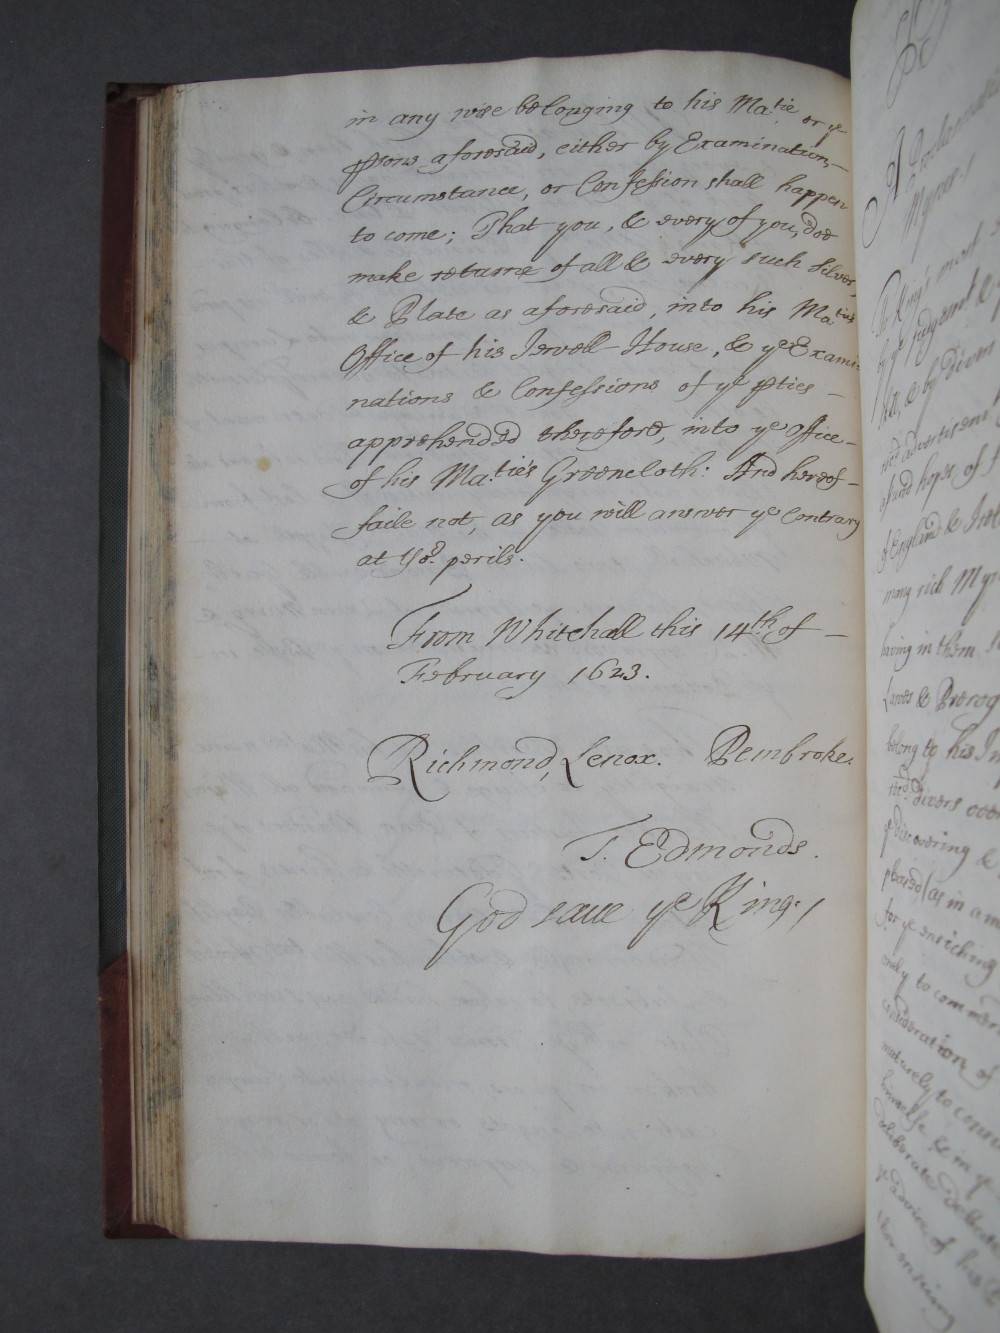 in any wise belonging to his Ma.tie or ye
psons aforesaid, either by Examination,
Circumstance, or Confession shall happen
to come; That you, & every of you, doe
make returne of all & every such Silver,
& Plate as aforesaid, into his Ma.ties
Office of his Jewell House, & ye Exami
nations & Confessions of ye pties
apprehended therefore, into ye Office
of his Ma.ties Greencloth: And hereof
faile not, as you will answer ye Contrary
at yor. perils.
From Whitehall this 14th. of
February 1623.
Richmond, Lenox. Pembroke.
T. Edmonds.
God save ye King./
A Proclamation
Mynes
The King's most
by ye judgment &
& by divers
advertisement
hopes of
of England &
many rich Myn
having in them
Lawes & Prerog
belong to his Im
divers
ye discovering &
(as in a
for ye enriching
only to
consideration of
maturely to
himselfe & in
deliberate
ye advice of his